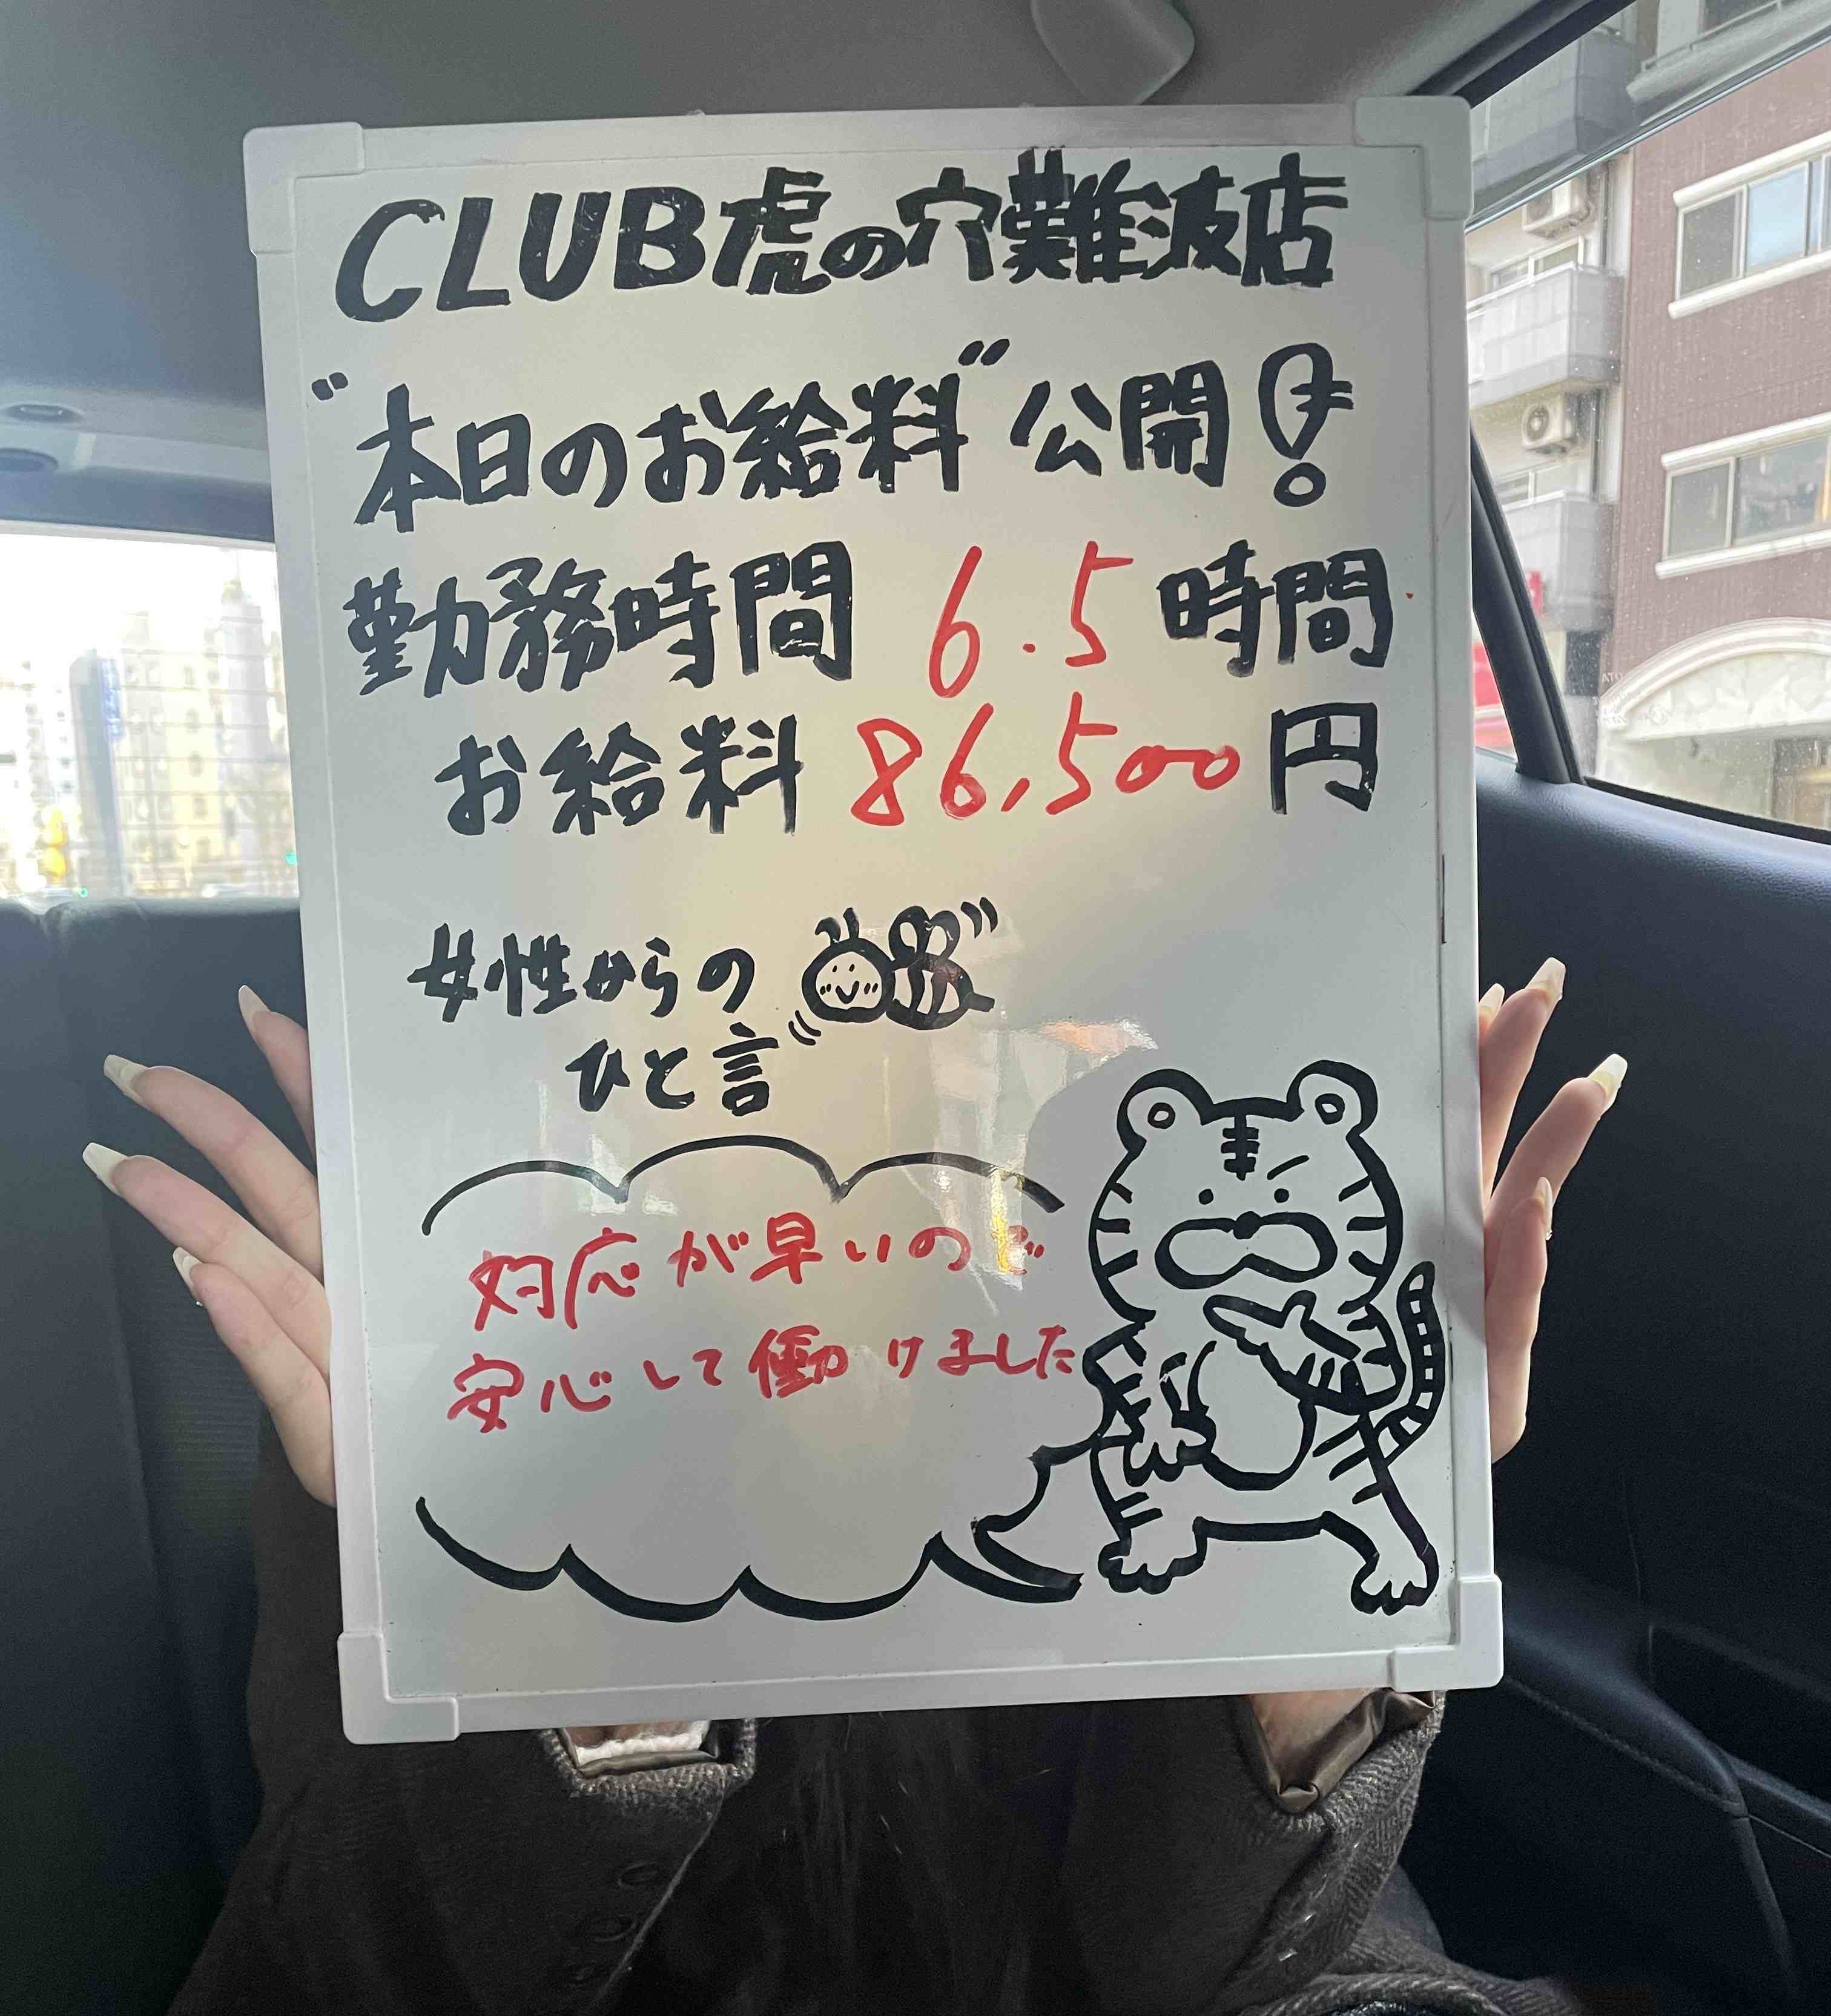 CLUB虎の穴難波店
"本日のお給料"公開!
勤務時間 6.5時間
お給料 86,500円
女性からの
ひと言
対応が早いので
安心して働けました